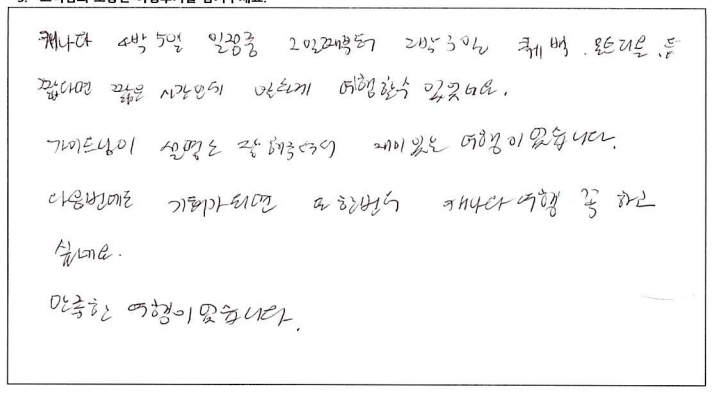 캐나다 4박 5일 일정중 2일째부터 2박 3일 퀘백, 몬트리올 등
짧다면 짧은 시간안에 알차게 여행할수 있었네요.
가이드님이 설명도 잘 해주셔서 재미있는 여행이였습니다.
다음번에도 기회가되면 또 한번더 캐나다 여행 꼭 하고
싶네요.
만족한 여행이였습니다.